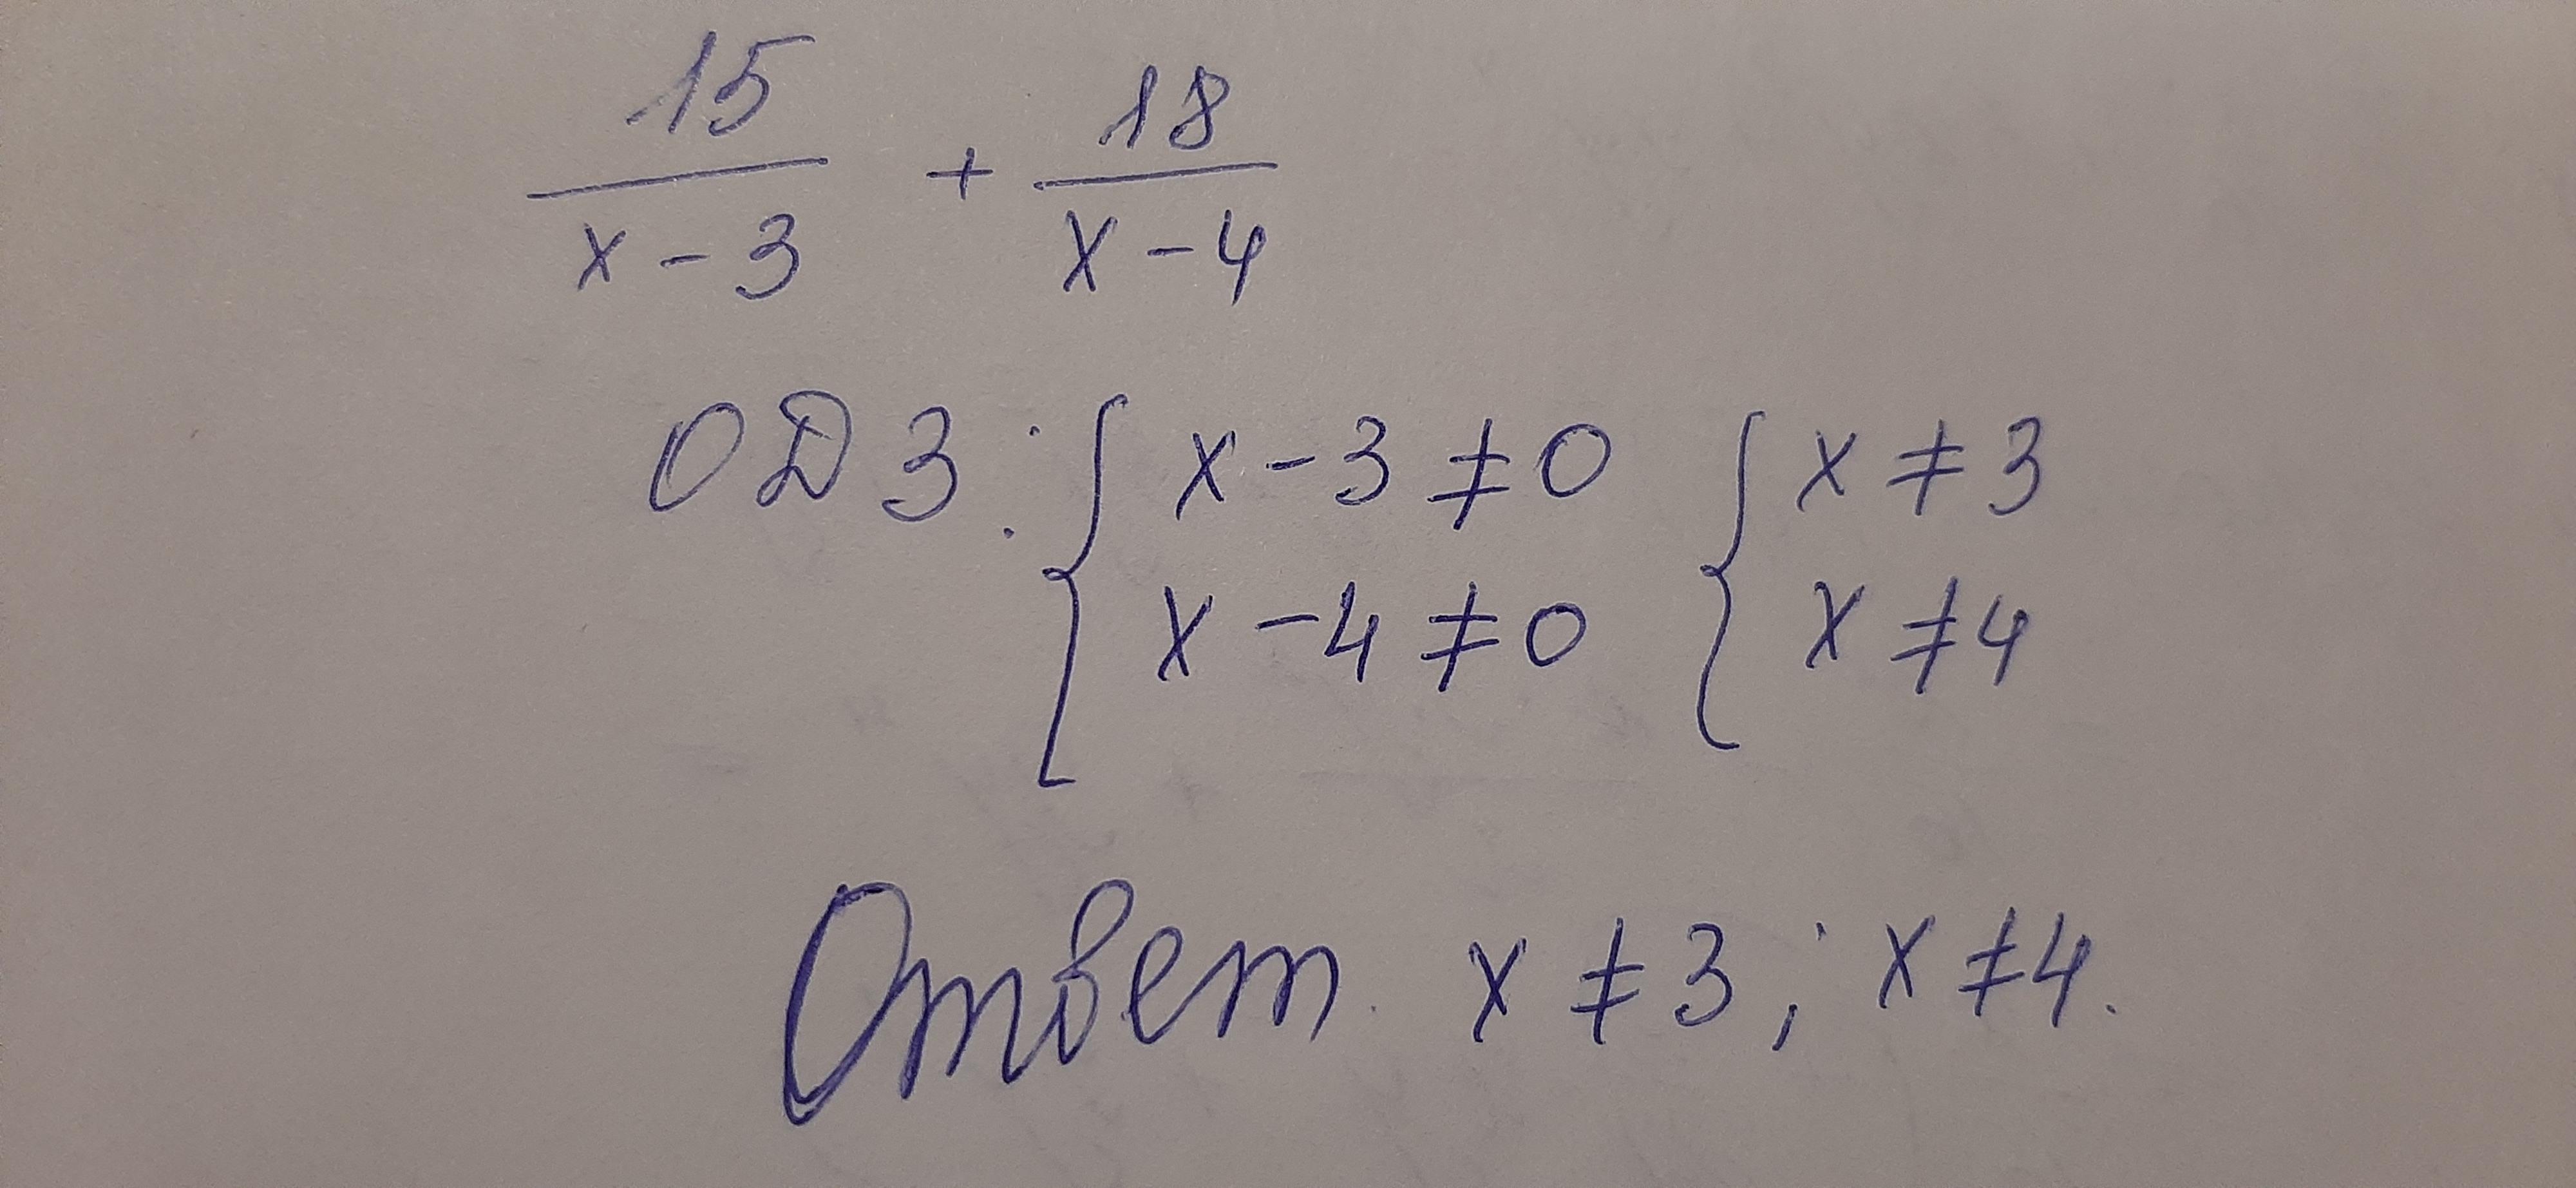 15/(x-3) + 18/(x-4)
ОДЗ: { x-3≠0 { x≠3
x-4≠0 x≠4
Ответ. x≠3; x≠4.